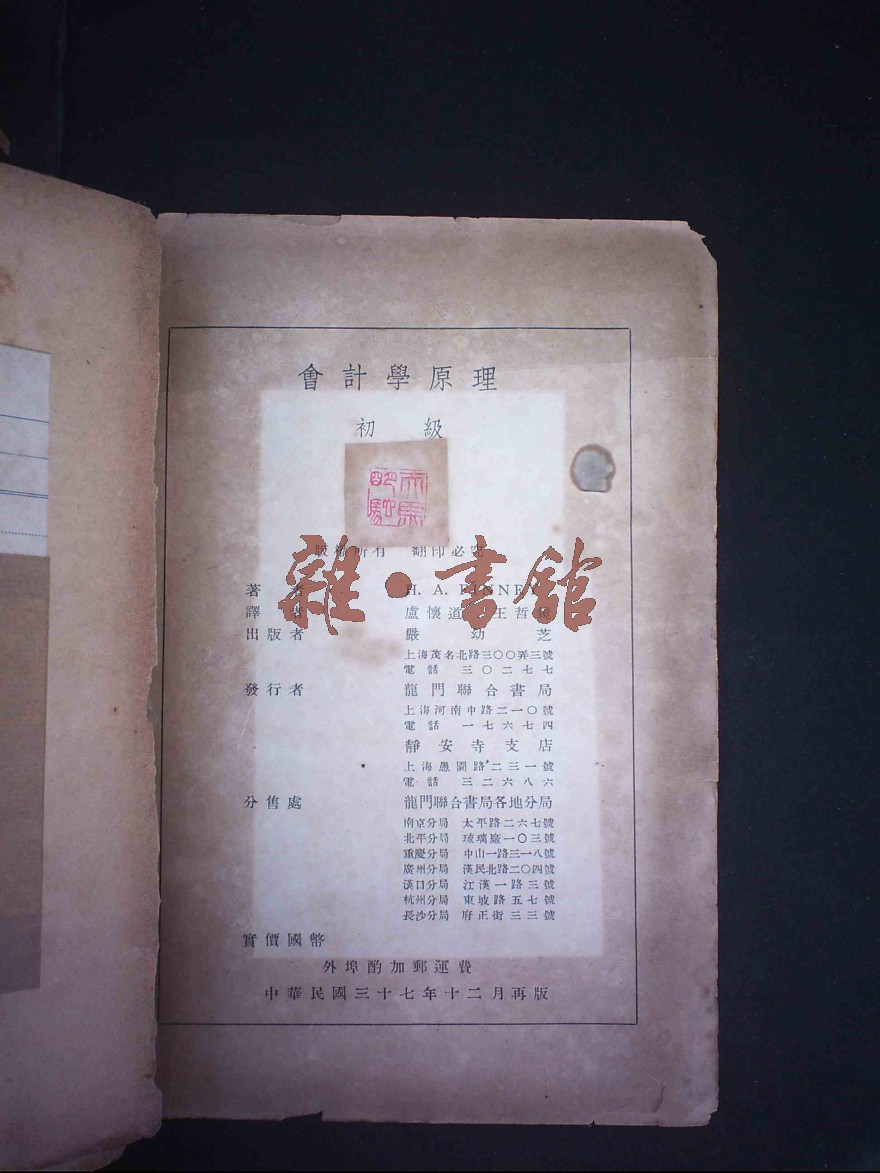 會計學原理
初級
版權所有 翻印必究
雜·書館
著者 H. A. FINNEY
譯者 盧懷道 王哲
出版者 嚴幼芝
上海茂名北路三〇〇弄三號
電話 三〇二七七
發行者 龍門聯合書局
上海河南中路二一〇號
電話 一七六七四
靜安寺支店
上海愚園路二三一號
電話 三二六八六
分售處 龍門聯合書局各地分局
南京分局 太平路二六七號
北平分局 琉璃廠一〇三號
重慶分局 中山一路三一八號
廣州分局 漢民北路二〇四號
漢口分局 江漢一路三號
杭州分局 東坡路五七號
長沙分局 府正街三三號
實價國幣
外埠酌加郵運費
中華民國三十七年十二月再版